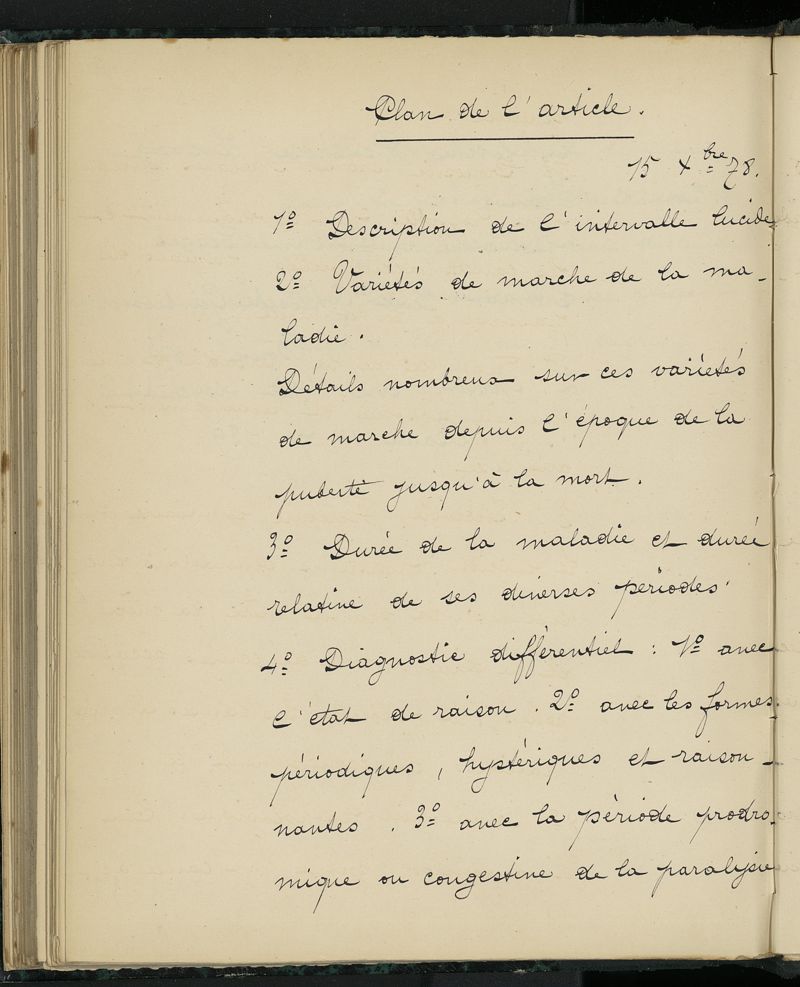 Plan de l'article.
15 Xbre 78.
1º Description de l'intervalle lucide
2º Variétés de marche de la ma-
ladie.
Détails nombreux sur ces variétés
de marche depuis l'époque de la
puberté jusqu'à la mort.
3º Durée de la maladie et durée
relative de ses diverses périodes.
4º Diagnostic différentiel : 1º avec
l'état de raison. 2º avec les formes
périodiques, hystériques et raison-
nantes. 3º avec la période prodro-
mique ou congestive de la paralysie